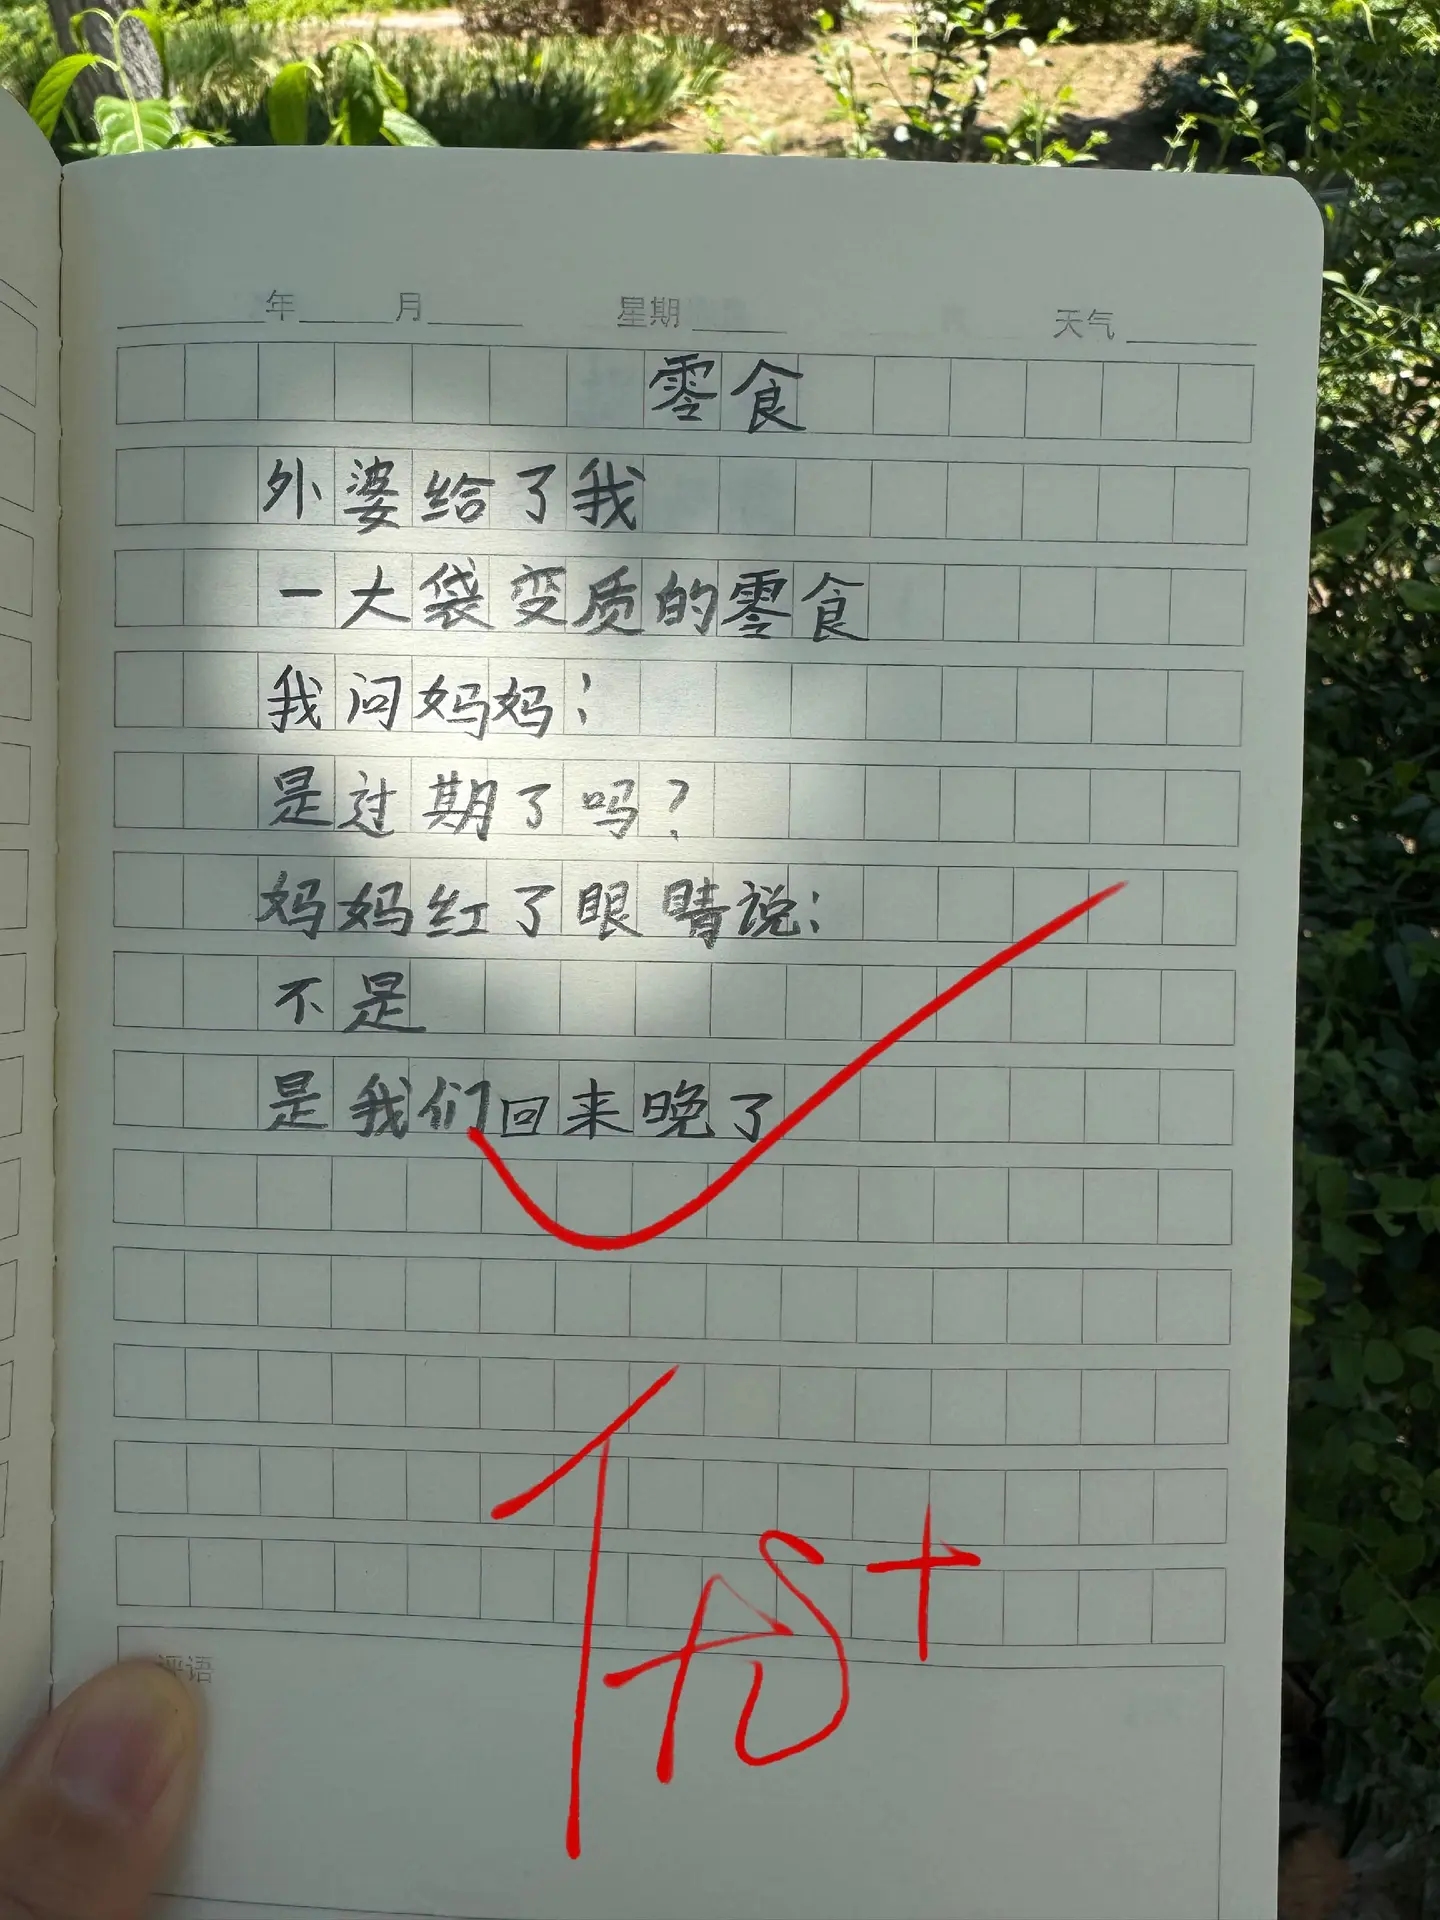 年 月 星期 天气
零食
外婆给了我
一大袋变质的零食
我问妈妈：
是过期了吗？
妈妈红了眼睛说：
不是
是我们回来晚了
优+
评语